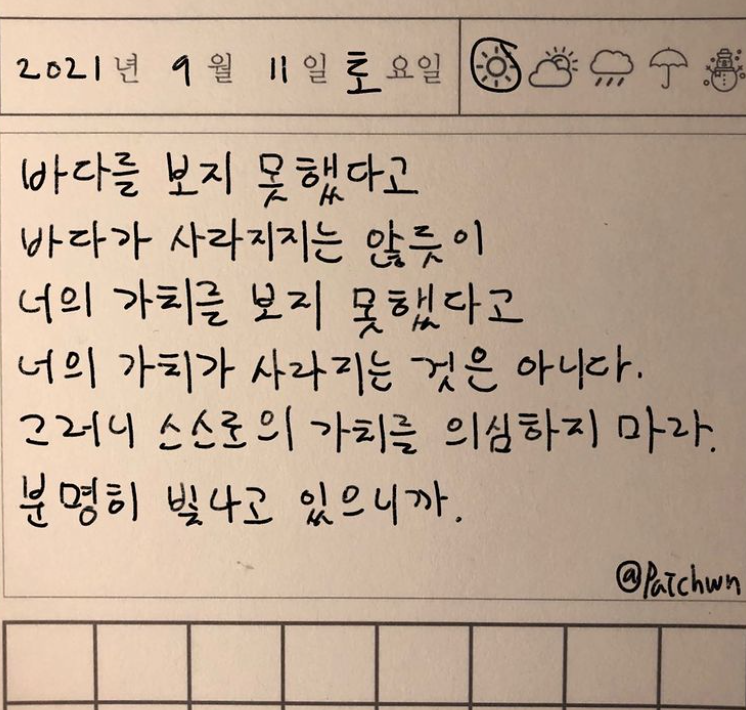 2021년 9월 11일 토요일
바다를 보지 못했다고
바다가 사라지지는 않듯이
너의 가치를 보지 못했다고
너의 가치가 사라지는 것은 아니다.
그러니 스스로의 가치를 의심하지 마라.
분명히 빛나고 있으니까.
@Patchwn